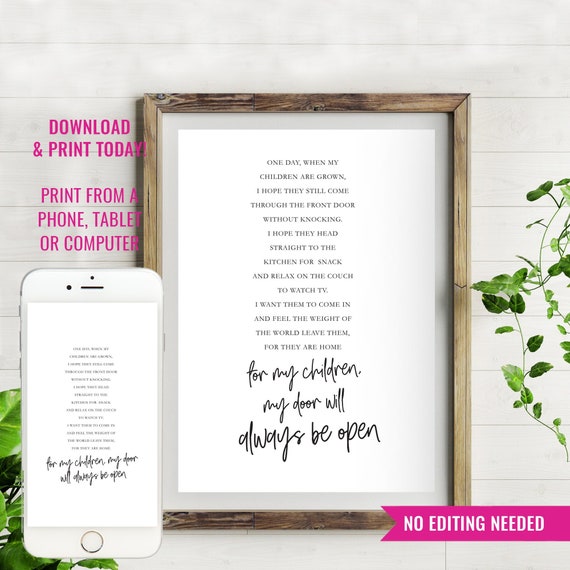 DOWNLOAD
& PRINT TODAY!
PRINT FROM A
PHONE, TABLET
OR COMPUTER
ONE DAY, WHEN MY
CHILDREN ARE GROWN,
I HOPE THEY STILL COME
THROUGH THE FRONT DOOR
WITHOUT KNOCKING.
I HOPE THEY HEAD
STRAIGHT TO THE
KITCHEN FOR SNACK
AND RELAX ON THE COUCH
TO WATCH TV.
I WANT THEM TO COME IN
AND FEEL THE WEIGHT OF
THE WORLD LEAVE THEM,
FOR THEY ARE HOME
for my children,
my door will
always be open
ONE DAY, WHEN MY
CHILDREN ARE GROWN,
I HOPE THEY STILL COME
THROUGH THE FRONT DOOR
WITHOUT KNOCKING.
I HOPE THEY HEAD
STRAIGHT TO THE
KITCHEN FOR SNACK
AND RELAX ON THE COUCH
TO WATCH TV.
I WANT THEM TO COME IN
AND FEEL THE WEIGHT OF
THE WORLD LEAVE THEM,
FOR THEY ARE HOME
for my children, my door
will always be open
NO EDITING NEEDED